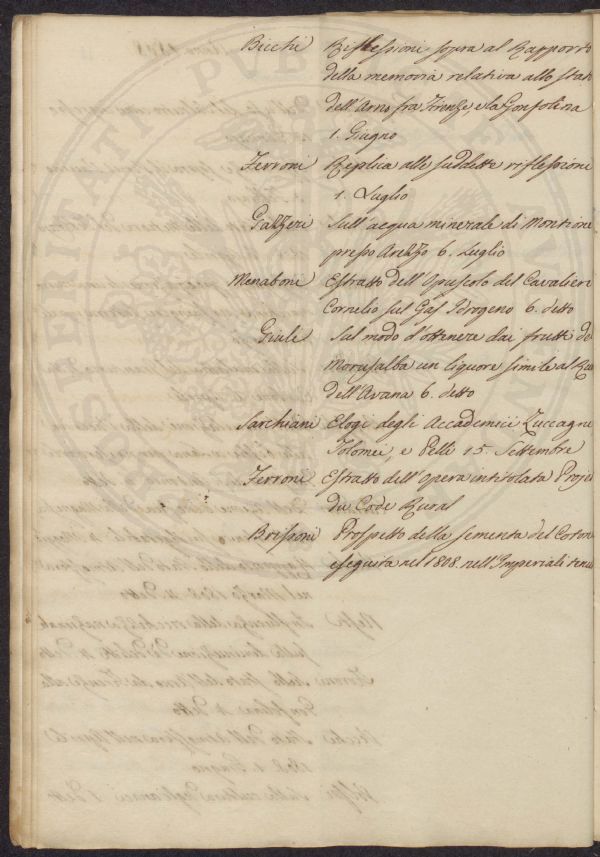 Bicchi Riflessioni sopra al Rapporto
della memoria relativa allo stato
dell'Arno fra Firenze, e la Gonfolina
1. Giugno
Ferroni Replica alle suddette riflessioni
1. Luglio
Gazzeri Sull'acqua minerale di Montione
presso Arezzo 6. Luglio
Menaboni Estratto dell'Opuscolo del Cavaliere
Cornelio sul Gas Idrogeno 6. detto
Giuli Sul modo d'ottenere dai frutti de
Morusalba un liquore simile al Rum
dell'Avana 6. detto
Sarchiani Elogi degli Accademici Zuccagni
Tolomei, e Pelli 15. Settembre
Ferroni Estratto dell'Opera intitolata Projet
du Code Rural
Brissoni Prospetto della sementa del Cotone
eseguita nel 1808. nell'Imperiali tenu